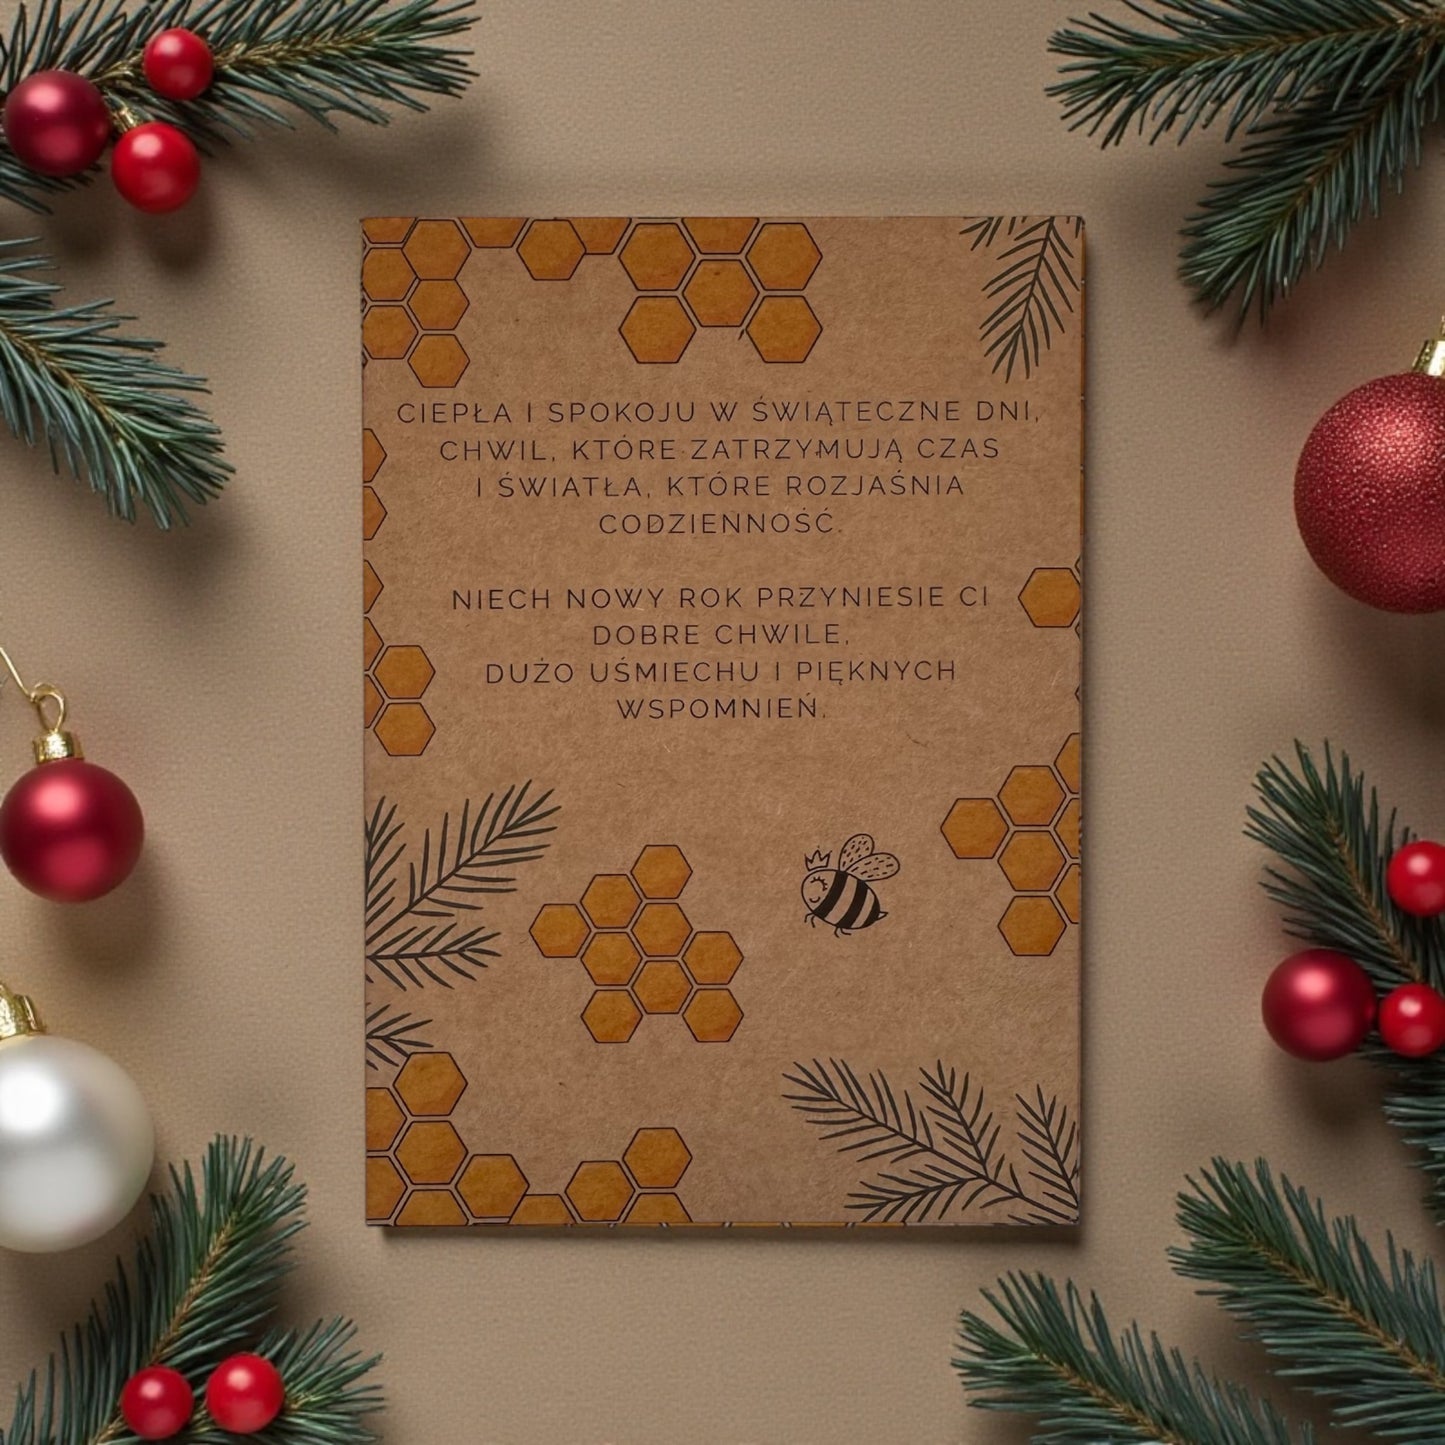 CIEPŁA I SPOKOJU W ŚWIĄTECZNE DNI,
CHWIL, KTÓRE ZATRZYMUJĄ CZAS
I ŚWIATŁA, KTÓRE ROZJAŚNIA
CODZIENNOŚĆ.
NIECH NOWY ROK PRZYNIESIE CI
DOBRE CHWILE,
DUŻO UŚMIECHU I PIĘKNYCH
WSPOMNIEŃ.